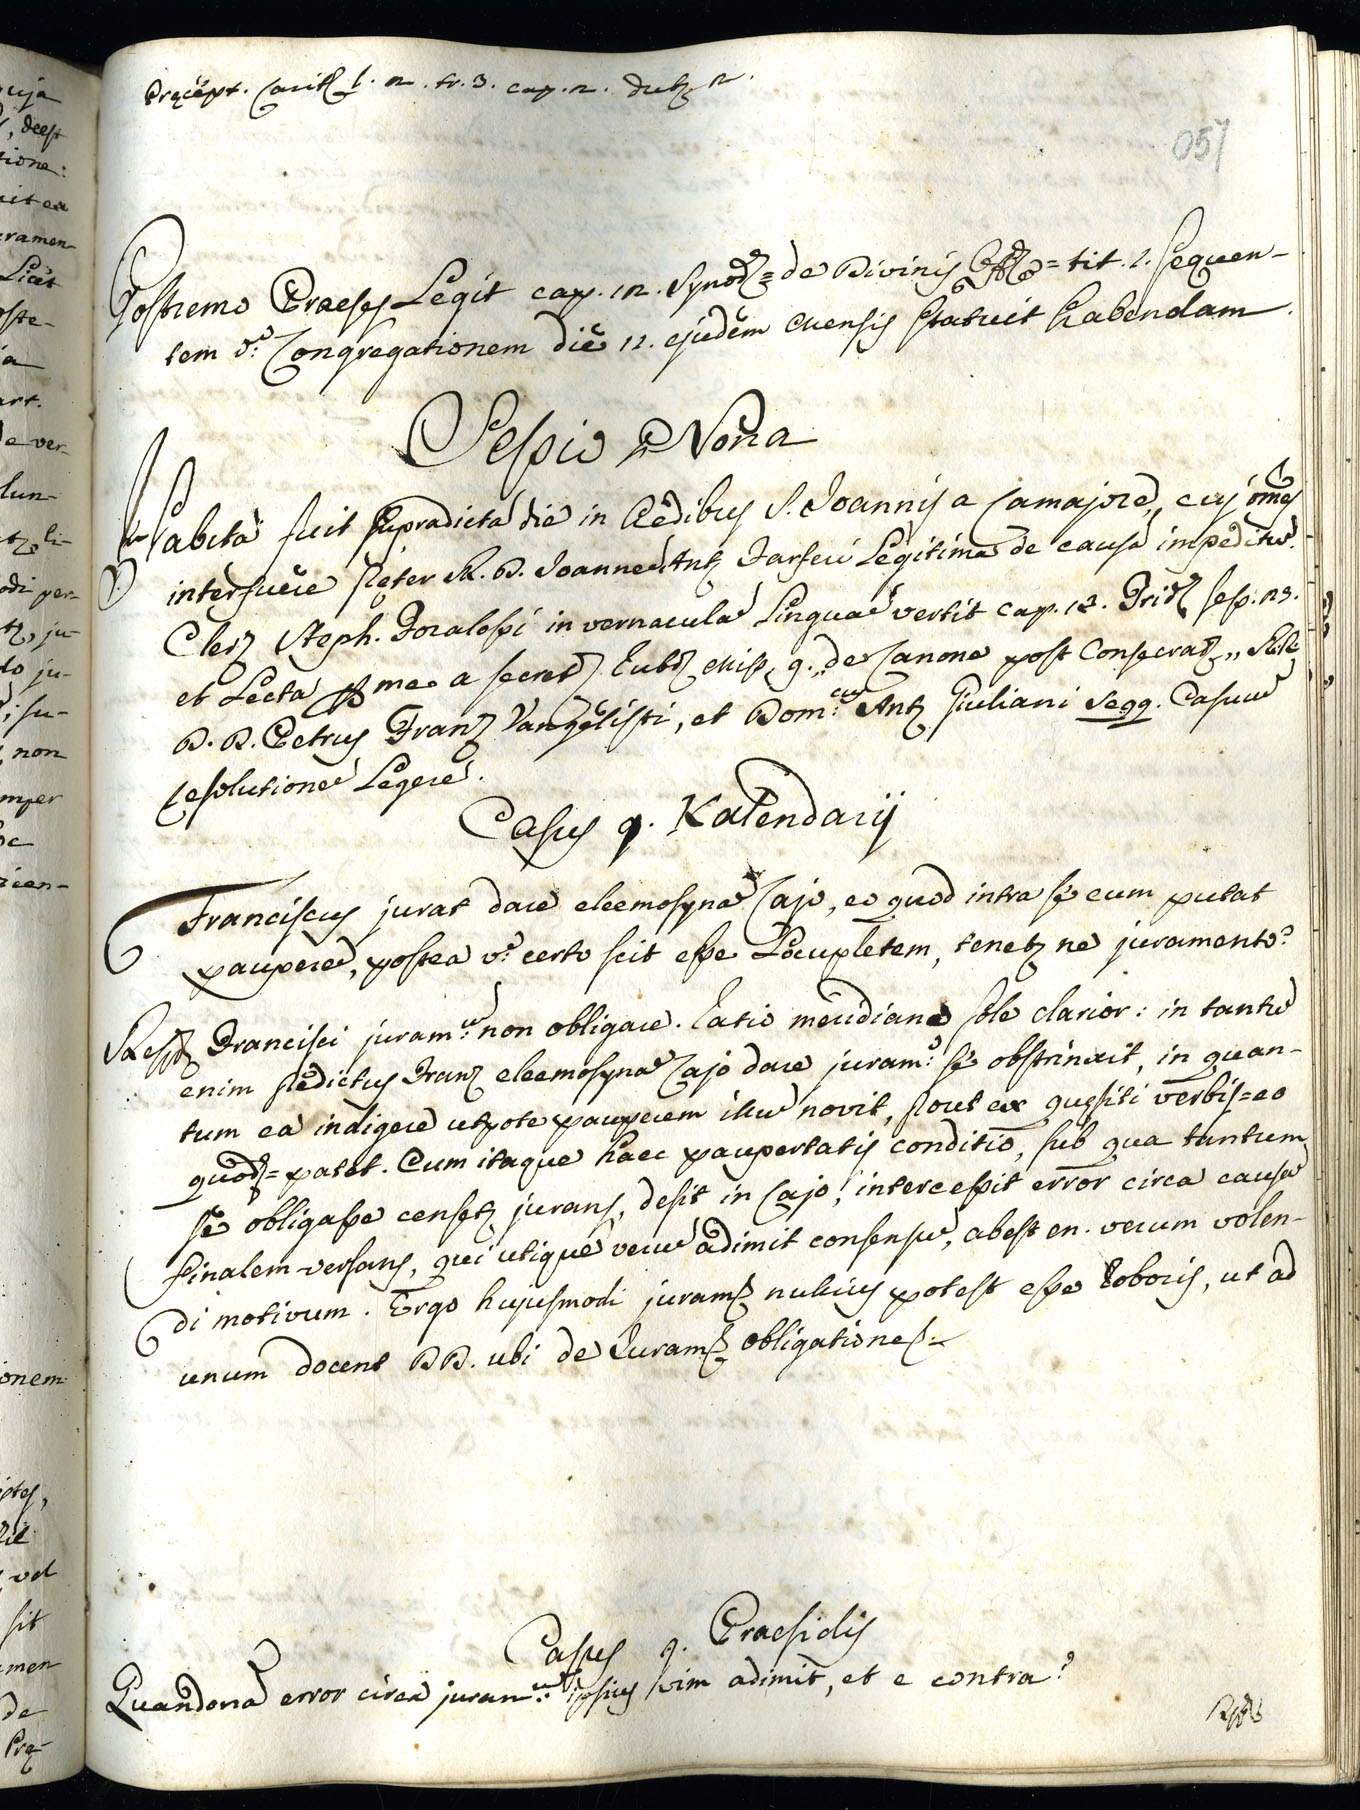 Præcept. Carit. l. 2. tr. 3. cap. 2. dub. 2.
057
Postremo Praeses Legit cap. 12. Synod. = de Divinis Off. = tit. 1. sequen-
tem vº Congregationem die 12. ejusdem mensis statuit habendam.
Sessio Nona
Habita fuit supradicta die in Aedibus S. Joannis a Camajore, cui omes
interfuere pręter R. D. Joannem Ant. Farseti Legitima de causa impeditu.
Cler. Steph. Doralossi in vernacula Lingua vertit cap. 13. Trid. sess. 23.
et Lecta per me a secret. Rub. Miss. 9. de Canone post Consecrat. „
D. D. Petrus Franc. Vangelisti, et Domcus Ant. Giuliani seqq. Casuu
resolutione Legere.
Casus 9. Kalendarij
Franciscus jurat dare eleemosyna Cajo, eo quod intra se eum putat
paupere, postea vº certo scit esse Locupletem, tenet. ne juramento?
Resp. Francisci juram. non obligare. Ratio meridiano sole clarior: in tantu
enim prędictus Franc. eleemosyna Cajo dare juramº se obstrinxit, in quan-
tum ea indigere utpote pauperem illu novit, prout ex quęsiti verbis = eo
quod = patet. Cum itaque haec paupertatis conditio, sub qua tantum
se obligasse censet. jurans, desit in Cajo, intercessit error circa causa
finalem versans, qui utique veru adimit consensu, abest en. verum volen-
di motivum. Ergo hujusmodi juram. nullius potest esse roboris, ut ad
unum docent DD. ubi de Juram. obligatione.
Casus 9. Praesidis
Quandona error circa juram. ipsius vim adimit, et e contra?